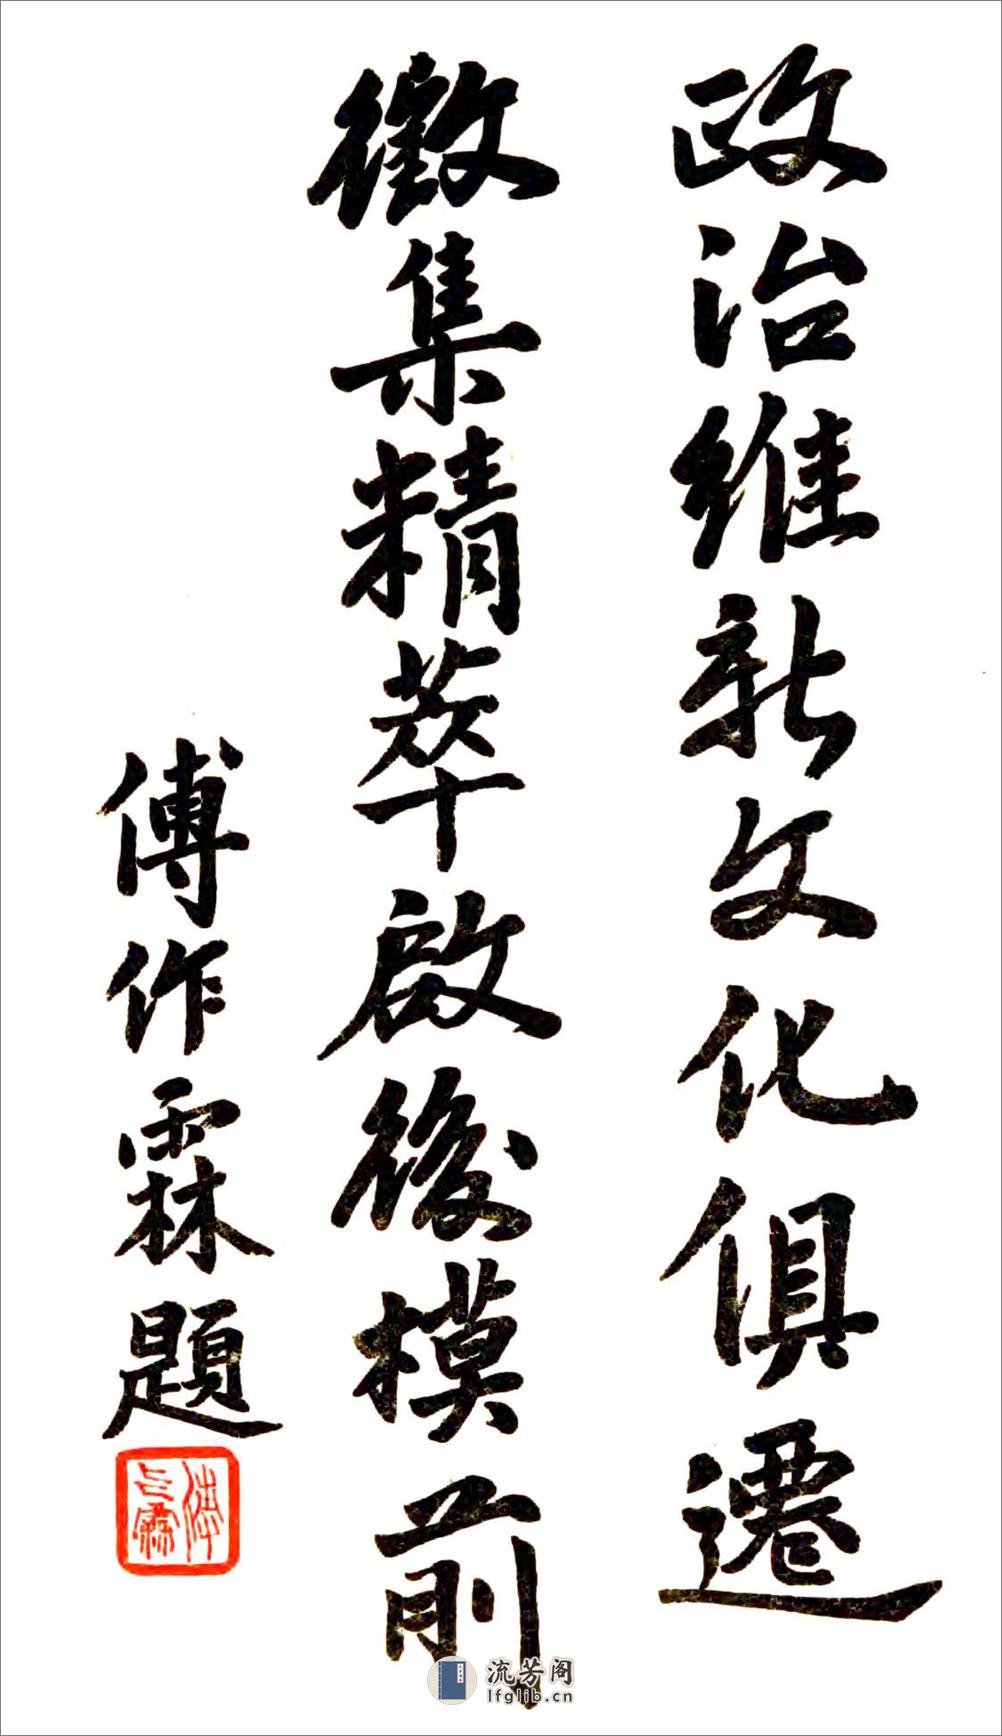 政治維新文化俱遷
徵集精萃啟後模前
傅作霖題
傅作霖
流芳阁
lfglib.cn